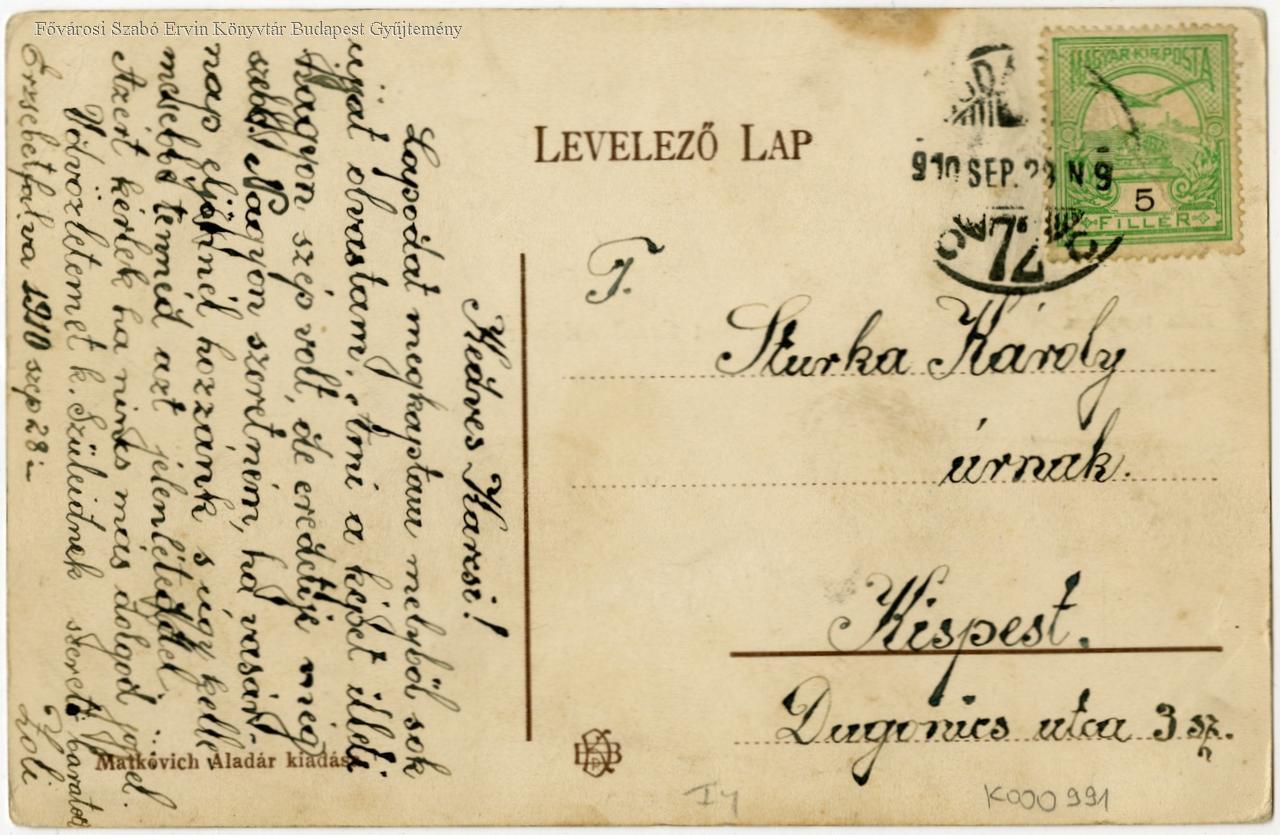 Fővárosi Szabó Ervin Könyvtár Budapest Gyűjtemény
LEVELEZŐ LAP
MAGYAR·KIR·POSTA
5
FILLÉR
910 SEP. 28 N 9
72
T.
Sturka Károly
úrnak.
Kispest.
Dugonics utca 3 sz.
Kedves Karcsi!
Lapodat megkaptam melyből sok
ujjat olvastam. Ami a képet illeti
nagyon szép volt, de eredetije még
szebb. Nagyon szeretném, ha vasár-
nap eljönnél hozzánk s úgy kelle
mesebbé tennéd azt jelenléteddel.
Azért kérlek ha nincs más dolgod jöjjel.
Üdvözletemet k. Szüleidnek szerető barátod
Erzsébetfalva 1910 szep 28-
Zoli
Matkovich Aladár kiadása
I4
K000991